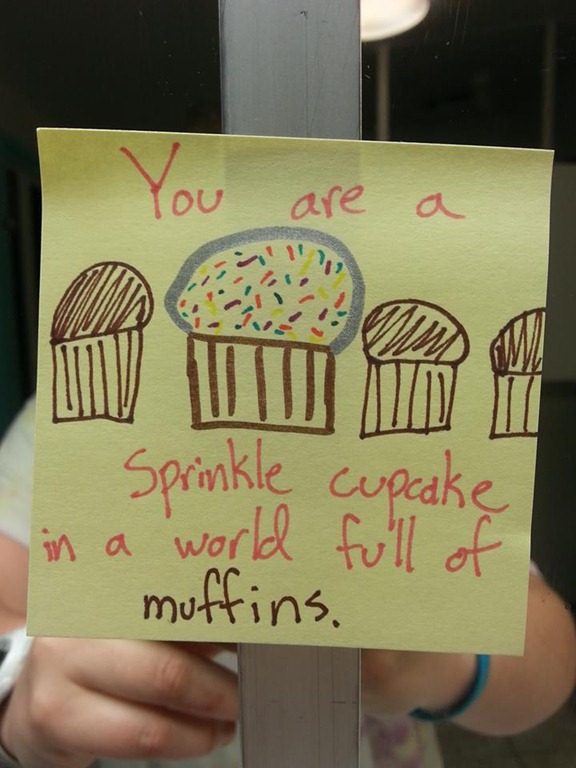 You are a
Sprinkle cupcake
in a world full of
muffins.